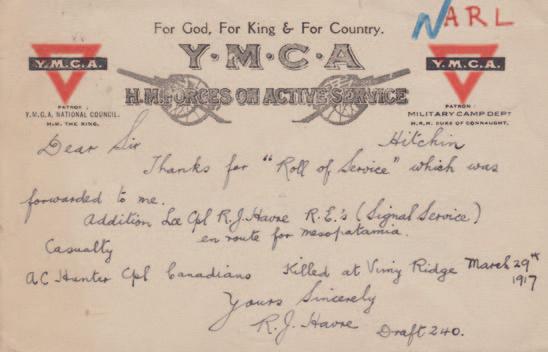 For God, For King & For Country.
ARL
Y·M·C·A
Y.M.C.A.
Y.M.C.A.
H.M. FORCES ON ACTIVE SERVICE
PATRON:
Y.M.C.A. NATIONAL COUNCIL.
H.M. THE KING.
PATRON:
MILITARY CAMP DEPT
H.R.H. DUKE OF CONNAUGHT.
Hitchin
Dear Sir
Thanks for "Roll of Service" which was
forwarded to me.
Addition Lce Cpl R.J. Havre R.E.'s (Signal Service)
en route for mesopatamia.
Casualty
A C Hunter Cpl Canadians Killed at Vimy Ridge March 29th
1917
Yours Sincerely
R.J. Havre
Draft 240.